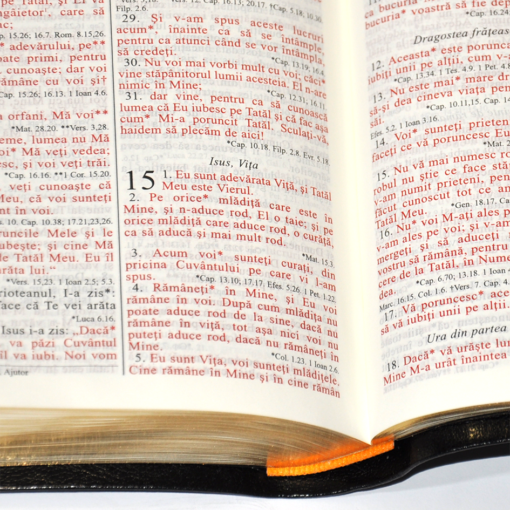 găietor', care să
Cap. 15.26; 16.7. Rom. 8.15,26.
adevărului, pe**
poate primi, pentru
cunoaşte; dar voi
rămâne cu voi şi
Cap. 16.13; 1 Ioan 4.6.
orfani, Mă voi**
*Mat. 28.20. **Vers. 3,28.
eme, lumea nu Mă
Mă veţi vedea;
esc, şi voi veţi trăi.
*Cap. 16.16 **1 Cor. 15.20.
veţi cunoaşte că
Meu, că voi sunteţi
unt în voi.
10. Cap. 10.38; 17.21,23,26.
runcile Mele şi le
ubeşte; şi cine Mă
de Tatăl Meu. Eu îl
ărăta lui."
*Vers. 15,23; 1 Ioan 2.5; 5.3.
rioteanul, I-a zis*:
face că Te vei arăta
*Luca 6.16.
Isus i-a zis: „Dacă*
va păzi Cuvântul
îl va iubi. Noi vom
Ajutor
Filip. 2.6.
29. Şi v-am spus aceste lucruri
acum*, înainte ca să se întâmple,
pentru ca atunci când se vor întâmpla,
să credeţi.
*Cap. 13.19; 16.4.
30. Nu voi mai vorbi mult cu voi; căci*
vine stăpânitorul lumii acesteia. El n-are
nimic în Mine;
*Cap. 12.31; 16.11.
31. dar vine, pentru ca să cunoască
lumea că Eu iubesc pe Tatăl şi că fac aşa
cum* Mi-a poruncit Tatăl. Sculaţi-vă,
haidem să plecăm de aici!
*Cap. 10.18. Filip. 2.8. Evr. 5.18.
Isus, Viţa
15 1. Eu sunt adevărata Viţă, şi Tatăl
Meu este Vierul.
2. Pe orice* mlădiţă care este în
Mine, şi n-aduce rod, El o taie; şi pe
orice mlădiţă care aduce rod, o curăţă,
ca să aducă şi mai mult rod.
*Mat. 15.3.
3. Acum voi* sunteţi curaţi, din
pricina Cuvântului pe care vi l-am
spus.
*Cap. 13.10; 17.17. Efes. 5.26. 1 Pet. 1.22.
4. Rămâneţi* în Mine, şi Eu voi
rămâne în voi. După cum mlădiţa nu
poate aduce rod de la sine, dacă nu
rămâne în viţă, tot aşa nici voi nu
puteţi aduce rod, dacă nu rămâneţi în
Mine.
*Col. 1.23. 1 Ioan 2.6.
5. Eu sunt Viţa, voi sunteţi mlădiţele.
Cine rămâne în Mine şi în cine rămân
bucuria*
*Cap. 16.24
Dragostea frăţeas
12. Aceasta* este porunc
iubiţi unii pe alţii, cum v-
*Cap. 13.34. 1 Tes. 4.9. 1 Pet. 4.8
13. Nu este mai* mare dr
să-şi dea cineva viaţa pen
*Cap. 10.11,15.
Efes. 5.2. 1 Ioan 3.16.
14. Voi* sunteţi prieten
faceţi ce vă poruncesc Eu
15. Nu vă mai numesc ro
robul nu ştie ce face stăp
v-am numit prieteni, pen
făcut cunoscut tot ce am
Tatăl Meu.
*Gen. 18.17.
16. Nu* voi M-aţi ales p
v-am ales pe voi; şi v-am
mergeţi şi să aduceţi
vostru să rămână, pentru
cere de la Tatăl, în Nume
dea.
*Cap. 6.70; 13.18. 1 Ioan 4
Marc. 16.15. Col. 1.6.
17. Vă poruncesc* ac
să vă iubiţi unii pe alţii.
Ura din partea
18. Dacă* vă urăşte lu
Mine M-a urât înaintea